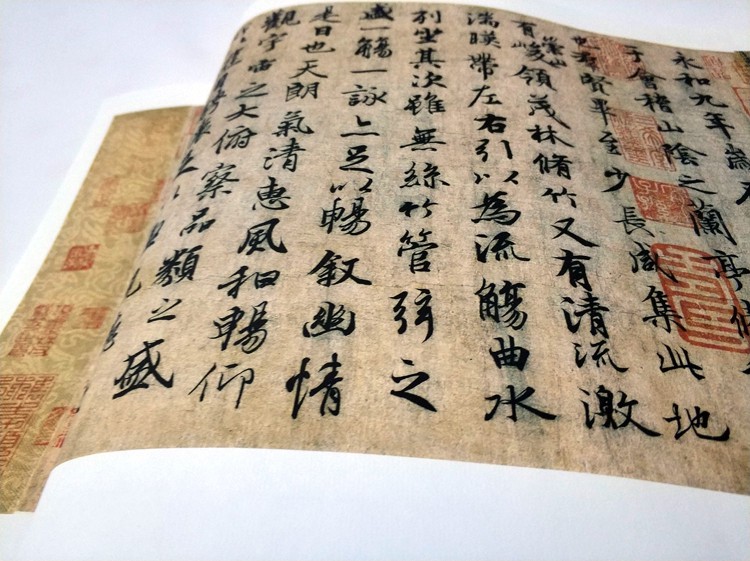 永和九年歲
于會稽山陰之蘭亭脩
也羣賢畢至少長咸集此地
有崇山峻領茂林脩竹又有清流激
湍暎帶左右引以為流觴曲水
列坐其次雖無絲竹管弦之
盛一觴一詠亦足以暢敘幽情
是日也天朗氣清惠風和暢仰
觀宇宙之大俯察品類之盛